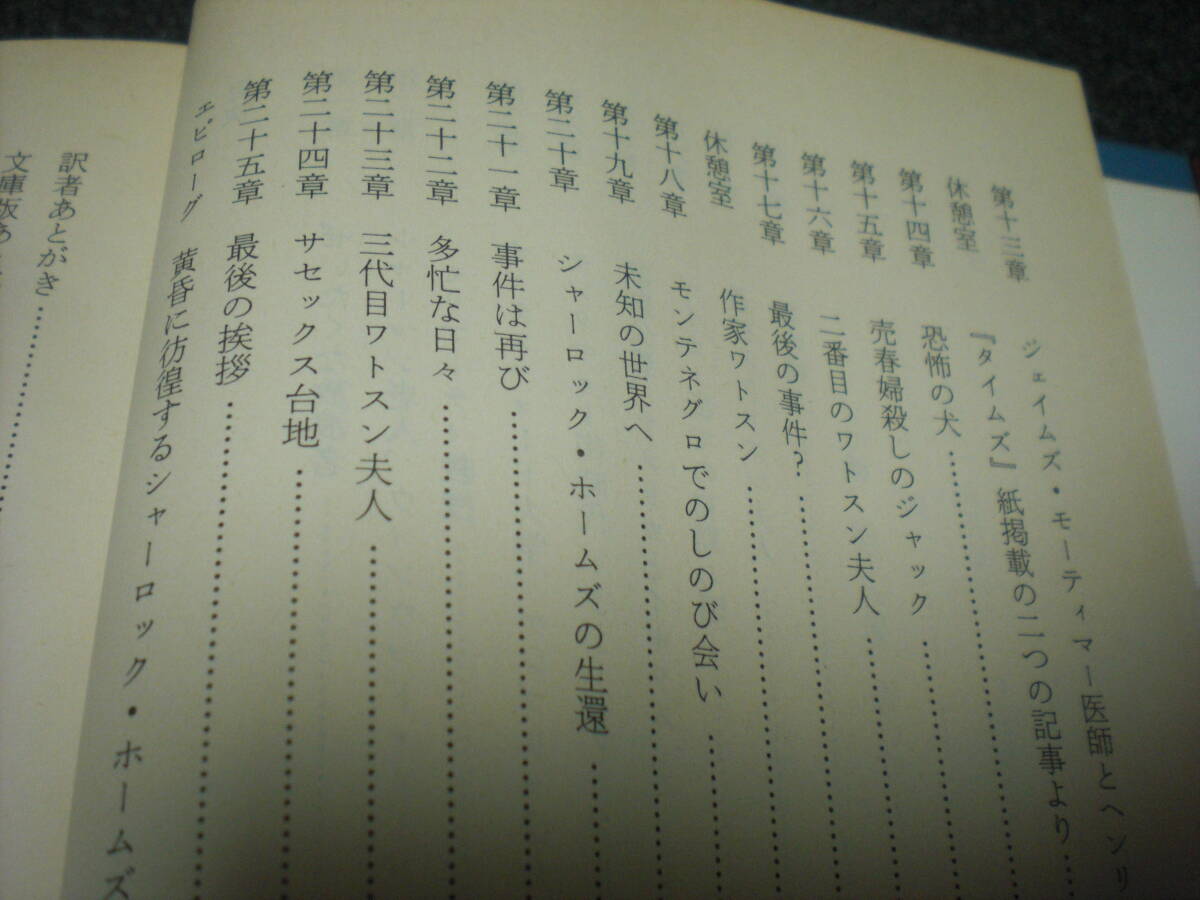 第十三章 ジェイムズ・モーティマー医師とヘンリ
休憩室 『タイムズ』紙掲載の二つの記事より
第十四章 恐怖の犬
第十五章 売春婦殺しのジャック
第十六章 二番目のワトスン夫人
第十七章 最後の事件?
休憩室 作家ワトスン
第十八章 モンテネグロでのしのび会い
第十九章 未知の世界へ
第二十章 シャーロック・ホームズの生還
第二十一章 事件は再び
第二十二章 多忙な日々
第二十三章 三代目ワトスン夫人
第二十四章 サセックス台地
第二十五章 最後の挨拶
エピローグ 黄昏に彷徨するシャーロック・ホームズ
訳者あとがき
文庫版あ